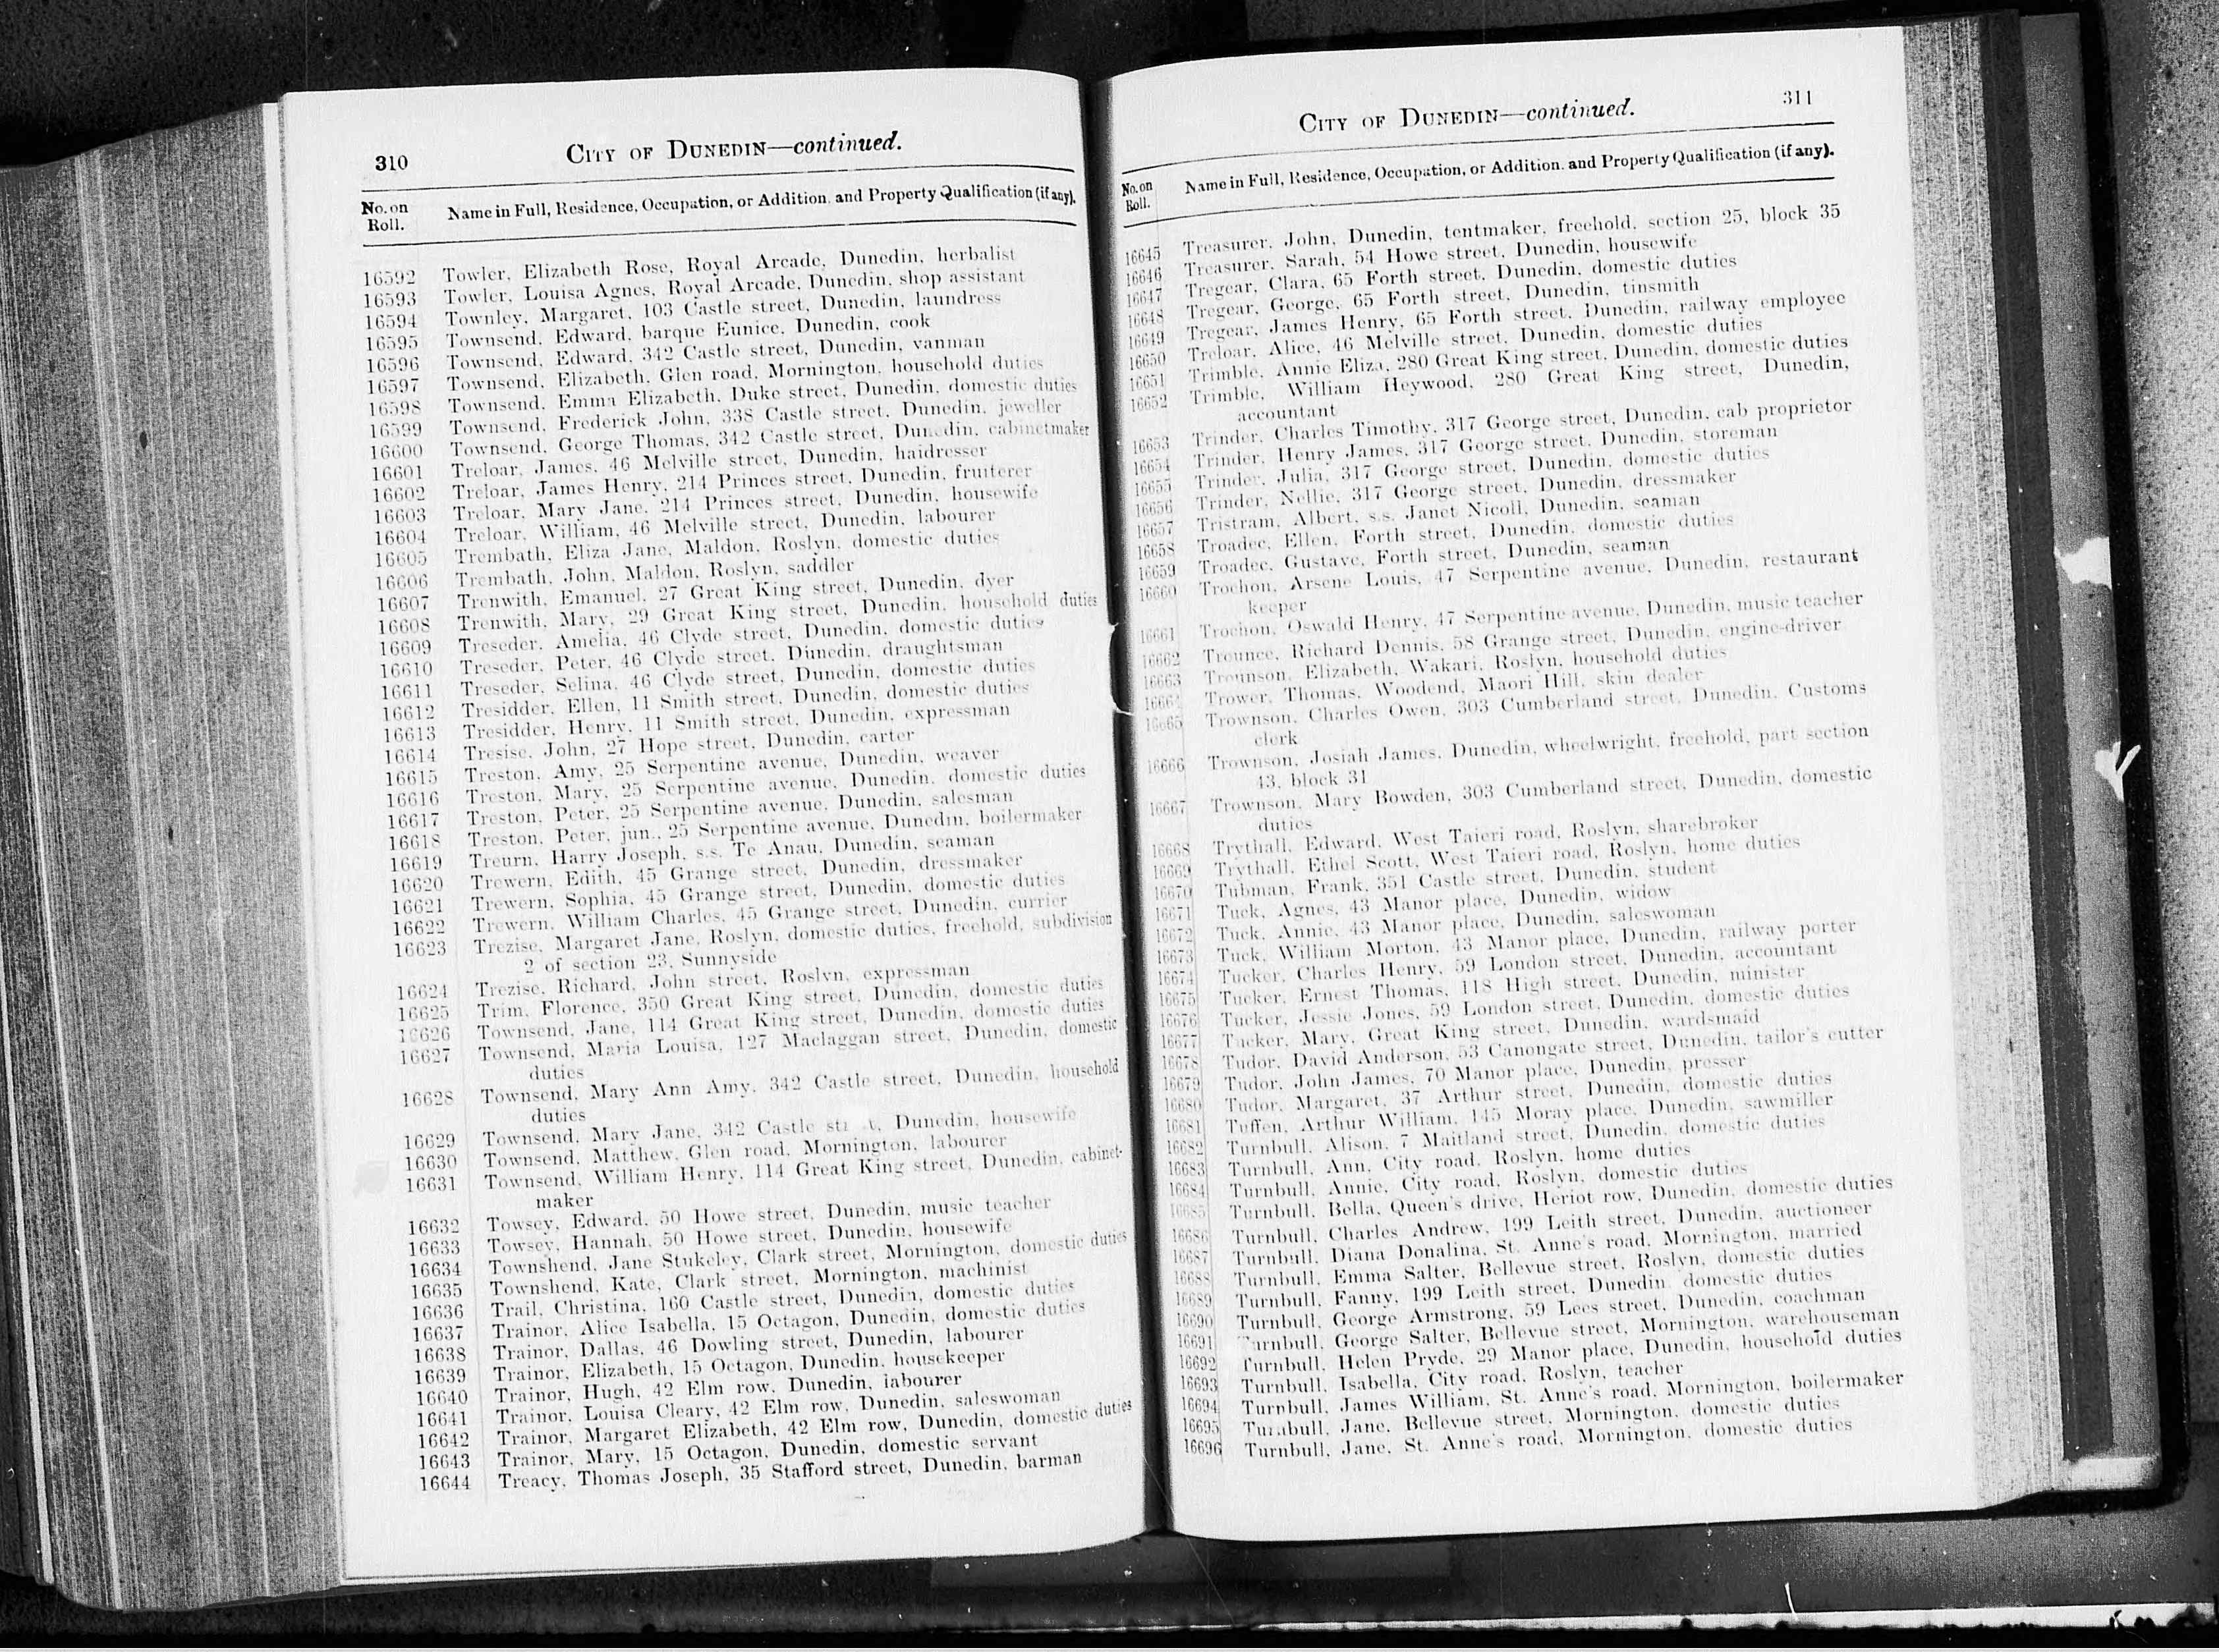 310
CITY OF DUNEDIN—continued.
No. on Roll.
Name in Full, Residence, Occupation, or Addition, and Property Qualification (if any).
16592 Towler, Elizabeth Rose, Royal Arcade, Dunedin, herbalist
16593 Towler, Louisa Agnes, Royal Arcade, Dunedin, shop assistant
16594 Townley, Margaret, 103 Castle street, Dunedin, laundress
16595 Townsend, Edward, barque Eunice, Dunedin, cook
16596 Townsend, Edward, 342 Castle street, Dunedin, vanman
16597 Townsend, Elizabeth, Glen road, Mornington, household duties
16598 Townsend, Emma Elizabeth, Duke street, Dunedin, domestic duties
16599 Townsend, Frederick John, 338 Castle street, Dunedin, jeweller
16600 Townsend, George Thomas, 342 Castle street, Dunedin, cabinetmaker
16601 Treloar, James, 46 Melville street, Dunedin, haidresser
16602 Treloar, James Henry, 214 Princes street, Dunedin, fruiterer
16603 Treloar, Mary Jane, 214 Princes street, Dunedin, housewife
16604 Treloar, William, 46 Melville street, Dunedin, labourer
16605 Trembath, Eliza Jane, Maldon, Roslyn, domestic duties
16606 Trembath, John, Maldon, Roslyn, saddler
16607 Trenwith, Emanuel, 27 Great King street, Dunedin, dyer
16608 Trenwith, Mary, 29 Great King street, Dunedin, household duties
16609 Treseder, Amelia, 46 Clyde street, Dunedin, domestic duties
16610 Treseder, Peter, 46 Clyde street, Dunedin, draughtsman
16611 Treseder, Selina, 46 Clyde street, Dunedin, domestic duties
16612 Tresidder, Ellen, 11 Smith street, Dunedin, domestic duties
16613 Tresidder, Henry, 11 Smith street, Dunedin, expressman
16614 Tresise, John, 27 Hope street, Dunedin, carter
16615 Treston, Amy, 25 Serpentine avenue, Dunedin, weaver
16616 Treston, Mary, 25 Serpentine avenue, Dunedin, domestic duties
16617 Treston, Peter, 25 Serpentine avenue, Dunedin, salesman
16618 Treston, Peter, jun., 25 Serpentine avenue, Dunedin, boilermaker
16619 Treurn, Harry Joseph, s.s. Te Anau, Dunedin, seaman
16620 Trewern, Edith, 45 Grange street, Dunedin, dressmaker
16621 Trewern, Sophia, 45 Grange street, Dunedin, domestic duties
16622 Trewern, William Charles, 45 Grange street, Dunedin, currier
16623 Trezise, Margaret Jane, Roslyn, domestic duties, freehold, subdivision
2 of section 23, Sunnyside
16624 Trezise, Richard, John street, Roslyn, expressman
16625 Trim, Florence, 350 Great King street, Dunedin, domestic duties
16626 Townsend, Jane, 114 Great King street, Dunedin, domestic duties
16627 Townsend, Maria Louisa, 127 Maclaggan street, Dunedin, domestic
duties
16628 Townsend, Mary Ann Amy, 342 Castle street, Dunedin, household
duties
16629 Townsend, Mary Jane, 342 Castle st t, Dunedin, housewife
16630 Townsend, Matthew, Glen road, Mornington, labourer
16631 Townsend, William Henry, 114 Great King street, Dunedin, cabinet-
maker
16632 Towsey, Edward, 50 Howe street, Dunedin, music teacher
16633 Towsey, Hannah, 50 Howe street, Dunedin, housewife
16634 Townshend, Jane Stukeley, Clark street, Mornington, domestic duties
16635 Townshend, Kate, Clark street, Mornington, machinist
16636 Trail, Christina, 160 Castle street, Dunedin, domestic duties
16637 Trainor, Alice Isabella, 15 Octagon, Dunedin, domestic duties
16638 Trainor, Dallas, 46 Dowling street, Dunedin, labourer
16639 Trainor, Elizabeth, 15 Octagon, Dunedin, housekeeper
16640 Trainor, Hugh, 42 Elm row, Dunedin, labourer
16641 Trainor, Louisa Cleary, 42 Elm row, Dunedin, saleswoman
16642 Trainor, Margaret Elizabeth, 42 Elm row, Dunedin, domestic duties
16643 Trainor, Mary, 15 Octagon, Dunedin, domestic servant
16644 Treacy, Thomas Joseph, 35 Stafford street, Dunedin, barman
CITY OF DUNEDIN—continued.
311
No. on Roll.
Name in Full, Residence, Occupation, or Addition, and Property Qualification (if any).
16645 Treasurer, John, Dunedin, tentmaker, freehold, section 25, block 35
16646 Treasurer, Sarah, 54 Howe street, Dunedin, housewife
16647 Tregear, Clara, 65 Forth street, Dunedin, domestic duties
16648 Tregear, George, 65 Forth street, Dunedin, tinsmith
16649 Tregear, James Henry, 65 Forth street, Dunedin, railway employee
16650 Treloar, Alice, 46 Melville street, Dunedin, domestic duties
16651 Trimble, Annie Eliza, 280 Great King street, Dunedin, domestic duties
16652 Trimble, William Heywood, 280 Great King street, Dunedin,
accountant
16653 Trinder, Charles Timothy, 317 George street, Dunedin, cab proprietor
16654 Trinder, Henry James, 317 George street, Dunedin, storeman
16655 Trinder, Julia, 317 George street, Dunedin, domestic duties
16656 Trinder, Nellie, 317 George street, Dunedin, dressmaker
16657 Tristram, Albert, s.s. Janet Nicoll, Dunedin, seaman
16658 Troadec, Ellen, Forth street, Dunedin, domestic duties
16659 Troadec, Gustave, Forth street, Dunedin, seaman
16660 Trochon, Arsene Louis, 47 Serpentine avenue, Dunedin, restaurant
keeper
16661 Trochon, Oswald Henry, 47 Serpentine avenue, Dunedin, music teacher
16662 Trounce, Richard Dennis, 58 Grange street, Dunedin, engine-driver
16663 Trounson, Elizabeth, Wakari, Roslyn, household duties
16664 Trower, Thomas, Woodend, Maori Hill, skin dealer
16665 Trownson, Charles Owen, 303 Cumberland street, Dunedin, Customs
clerk
16666 Trownson, Josiah James, Dunedin, wheelwright, freehold, part section
43, block 31
16667 Trownson, Mary Bowden, 303 Cumberland street, Dunedin, domestic
duties
16668 Trythall, Edward, West Taieri road, Roslyn, sharebroker
16669 Trythall, Ethel Scott, West Taieri road, Roslyn, home duties
16670 Tubman, Frank, 351 Castle street, Dunedin, student
16671 Tuck, Agnes, 43 Manor place, Dunedin, widow
16672 Tuck, Annie, 43 Manor place, Dunedin, saleswoman
16673 Tuck, William Morton, 43 Manor place, Dunedin, railway porter
16674 Tucker, Charles Henry, 59 London street, Dunedin, accountant
16675 Tucker, Ernest Thomas, 118 High street, Dunedin, minister
16676 Tucker, Jessie Jones, 59 London street, Dunedin, domestic duties
16677 Tucker, Mary, Great King street, Dunedin, wardsmaid
16678 Tudor, David Anderson, 53 Canongate street, Dunedin, tailor's cutter
16679 Tudor, John James, 70 Manor place, Dunedin, presser
16680 Tudor, Margaret, 37 Arthur street, Dunedin, domestic duties
16681 Tuffen, Arthur William, 145 Moray place, Dunedin, sawmiller
16682 Turnbull, Alison, 7 Maitland street, Dunedin, domestic duties
16683 Turnbull, Ann, City road, Roslyn, home duties
16684 Turnbull, Annie, City road, Roslyn, domestic duties
16685 Turnbull, Bella, Queen's drive, Heriot row, Dunedin, domestic duties
16686 Turnbull, Charles Andrew, 199 Leith street, Dunedin, auctioneer
16687 Turnbull, Diana Donalina, St. Anne's road, Mornington, married
16688 Turnbull, Emma Salter, Bellevue street, Roslyn, domestic duties
16689 Turnbull, Fanny, 199 Leith street, Dunedin, domestic duties
16690 Turnbull, George Armstrong, 59 Lees street, Dunedin, coachman
16691 Turnbull, George Salter, Bellevue street, Mornington, warehouseman
16692 Turnbull, Helen Pryde, 29 Manor place, Dunedin, household duties
16693 Turnbull, Isabella, City road, Roslyn, teacher
16694 Turnbull, James William, St. Anne's road, Mornington, boilermaker
16695 Turnbull, Jane, Bellevue street, Mornington, domestic duties
16696 Turnbull, Jane, St. Anne's road, Mornington, domestic duties